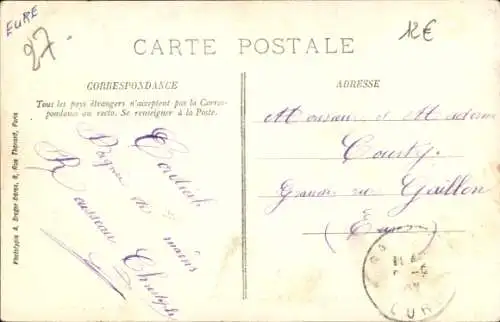 EURE
27
12€
CARTE POSTALE
CORRESPONDANCE
Tous les pays étrangers n'acceptent pas la Corres-
pondance au recto. Se renseigner à la Poste.
Cordiale
Poignée de mains
Rousseau
ADRESSE
Monsieur et Madame
Courty
Grande rue Gaillon
(Eure)
EURE
Phototypie A. Breger frères, 9, Rue Thénard, Paris